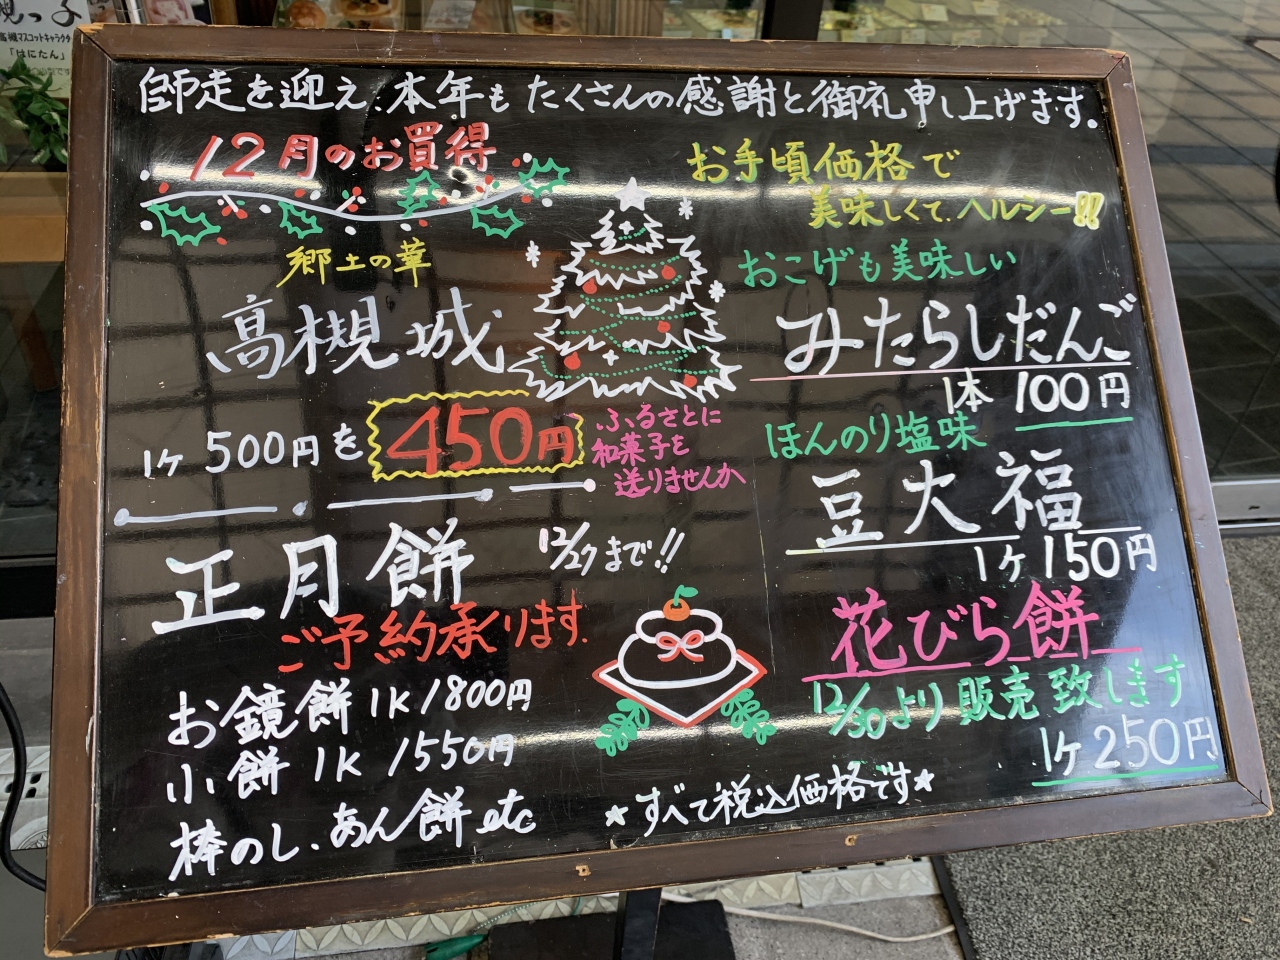 師走を迎え、本年もたくさんの感謝と御礼申し上げます。
12月のお買得
郷土の華
高槻城
1ケ 500円を 450円
ふるさとに
和菓子を
送りませんか
正月餅 12/27まで!!
ご予約承ります.
お鏡餅 1K 1800円
小餅 1K 1550円
棒のし. あん餅 etc
お手頃価格で
美味しくて、ヘルシー!!
おこげも美味しい
みたらしだんご
1本 100円
ほんのり塩味
豆大福
1ケ 150円
花びら餅
12/30より販売致します
1ケ 250円
★すべて税込価格です★
高槻マスコットキャラクター
「はにたん」